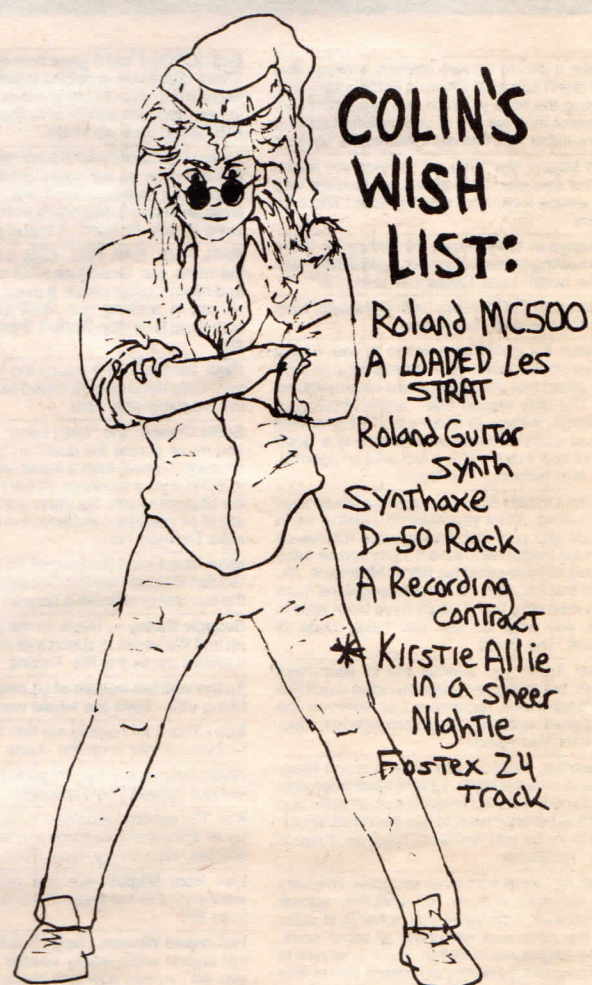 COLIN'S
WISH
LIST:
Roland MC500
A LOADED Les
STRAT
Roland Guitar
Synth
Synthaxe
D-50 Rack
A Recording
contract
* Kirstie Allie
in a sheer
Nightie
Fostex 24
Track